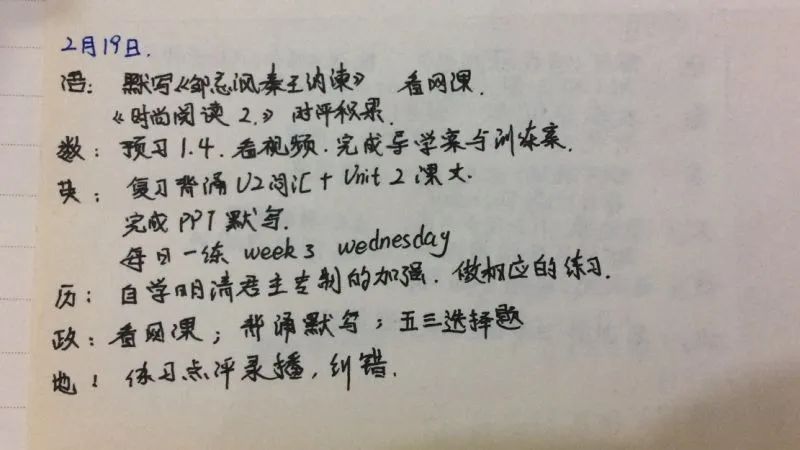 2月19日.
语: 默写《邹忌讽秦王纳谏》 看网课.
《时尚阅读 2.》 时评积累.
数: 预习1.4. 看视频. 完成导学案与训练案.
英: 复习背诵U2词汇+Unit 2课文.
完成PPT默写.
每日一练 week 3 wednesday
历: 自学明清君主专制的加强. 做相应的练习.
政: 看网课; 背诵默写; 五三选择题
地: 练习点评录播, 纠错.